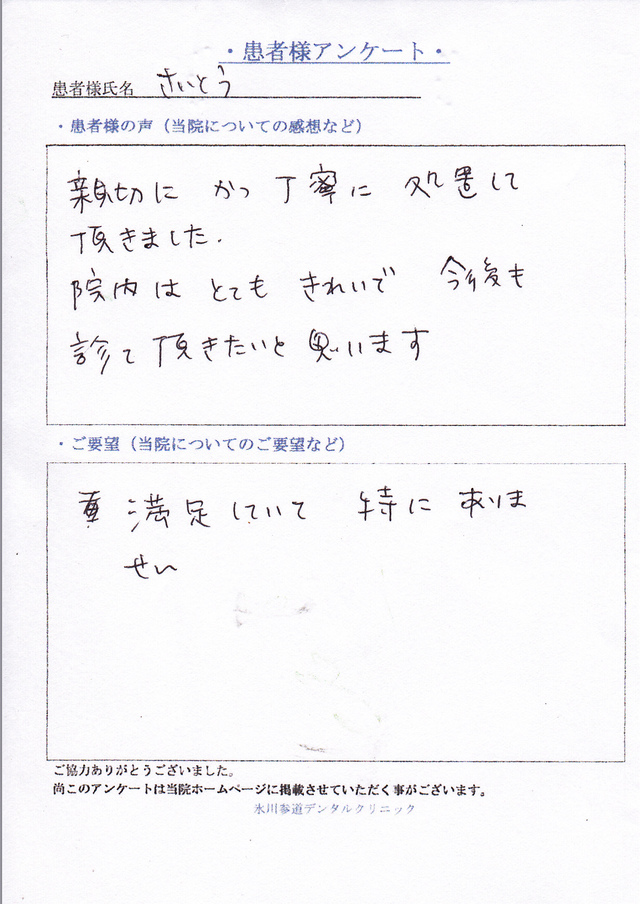 ・患者様アンケート・
患者様氏名 さいとう
・患者様の声（当院についての感想など）
親切に かつ 丁寧に 処置して
頂きました.
院内は とても きれいで 今後も
診て 頂きたいと 思います
・ご要望（当院についてのご要望など）
満足していて 特に ありま
せん
ご協力ありがとうございました。
尚このアンケートは当院ホームページに掲載させていただく事がございます。
氷川参道デンタルクリニック